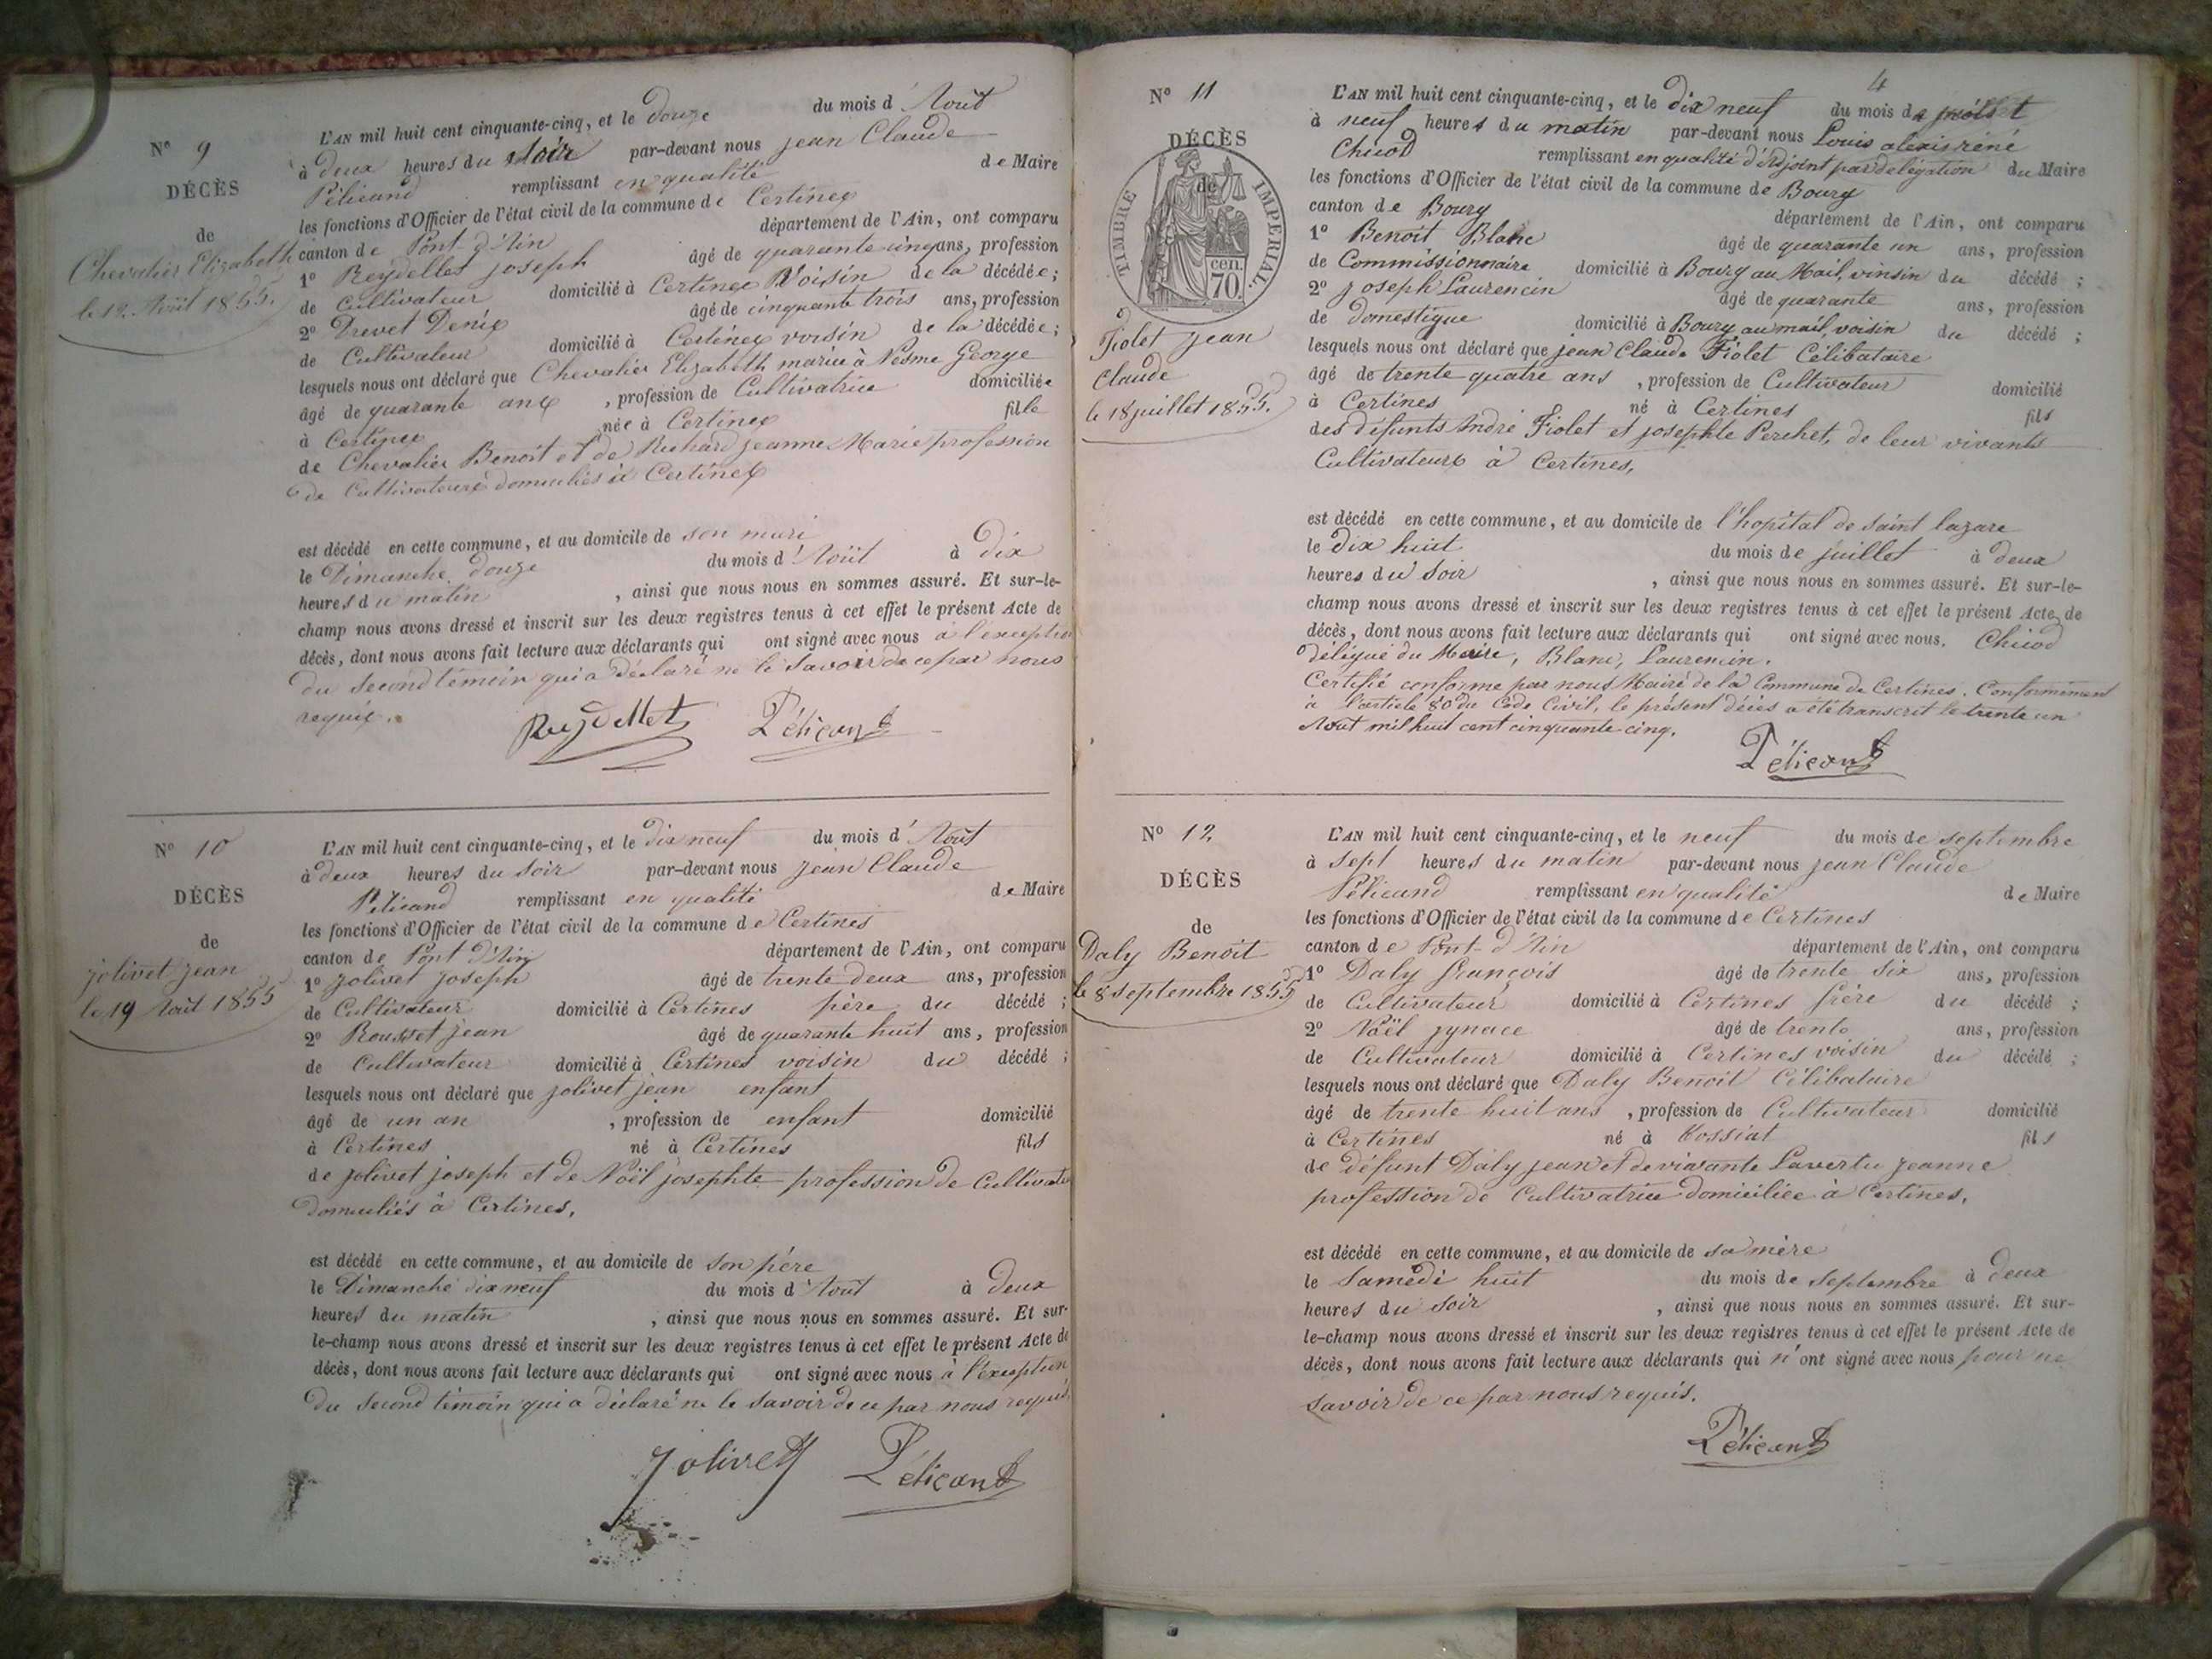 N° 9
DÉCÈS
de
Chevalier Elizabeth
le 12 Août 1855.
L'AN mil huit cent cinquante-cinq, et le douze du mois d'Août
à deux heures du soir par-devant nous jean Claude
Pélicand remplissant en qualité de Maire
les fonctions d'Officier de l'état civil de la commune de Certines
canton de Pont-d'Ain département de l'Ain, ont comparu
1° Reydellet joseph âgé de quarante cinq ans, profession
de Cultivateur domicilié à Certines Voisin de la décédée;
2° Drevet Denis âgé de cinquante trois ans, profession
de Cultivateur domicilié à Certines voisin de la décédée;
lesquels nous ont déclaré que Chevalier Elizabeth mariée à Nesme George
âgé de quarante ans, profession de Cultivatrice domiciliée
à Certines née à Certines fille
de Chevalier Benoit et de Richard jeanne Marie profession
de Cultivateurs domiciliés à Certines
est décédé en cette commune, et au domicile de son mari
le Dimanche douze du mois d'Août à dix
heures du matin, ainsi que nous nous en sommes assuré. Et sur-le-
champ nous avons dressé et inscrit sur les deux registres tenus à cet effet le présent Acte de
décès, dont nous avons fait lecture aux déclarants qui ont signé avec nous à l'exception
du second témoin qui a déclaré ne le savoir de ce par nous
requis.
Reydellet Pélicand
N° 10
DÉCÈS
de
jolivet jean
le 19 Août 1855
L'AN mil huit cent cinquante-cinq, et le dix neuf du mois d'Août
à deux heures du soir par-devant nous jean Claude
Pélicand remplissant en qualité de Maire
les fonctions d'Officier de l'état civil de la commune de Certines
canton de Pont d'Ain département de l'Ain, ont comparu
1° jolivet joseph âgé de trente deux ans, profession
de Cultivateur domicilié à Certines père du décédé;
2° Rousset jean âgé de quarante huit ans, profession
de Cultivateur domicilié à Certines voisin du décédé;
lesquels nous ont déclaré que jolivet jean enfant
âgé de un an, profession de enfant domicilié
à Certines né à Certines fils
de jolivet joseph et de Noël josephte profession de Cultivate
domiciliés à Certines.
est décédé en cette commune, et au domicile de son père
le Dimanche dix neuf du mois d'Août à deux
heures du matin, ainsi que nous nous en sommes assuré. Et sur-
le-champ nous avons dressé et inscrit sur les deux registres tenus à cet effet le présent Acte de
décès, dont nous avons fait lecture aux déclarants qui ont signé avec nous à l'exception
du second témoin qui a déclaré ne le savoir de ce par nous requis.
Jolivet Pélicand
4
N° 11
DÉCÈS
de
TIMBRE IMPERIAL
70 cen.
Fiolet jean
Claude
le 18 juillet 1855.
L'AN mil huit cent cinquante-cinq, et le dix neuf du mois de juillet
à neuf heures du matin par-devant nous Louis alexis réné
Chicod remplissant en qualité d'Adjoint par délégation du Maire
les fonctions d'Officier de l'état civil de la commune de Bourg
canton de Bourg département de l'Ain, ont comparu
1° Benoit Blanc âgé de quarante un ans, profession
de Commissionnaire domicilié à Bourg au Mail, voisin du décédé;
2° joseph Laurencin âgé de quarante ans, profession
de domestique domicilié à Bourg au mail, voisin du décédé;
lesquels nous ont déclaré que jean Claude Fiolet Célibataire
âgé de trente quatre ans, profession de Cultivateur domicilié
à Certines né à Certines fils
des défunts André Fiolet et josephte Perchet, de leur vivants
Cultivateurs à Certines,
est décédé en cette commune, et au domicile de l'hopital de Saint lazare
le dix huit du mois de juillet à deux
heures du soir, ainsi que nous nous en sommes assuré. Et sur-le-
champ nous avons dressé et inscrit sur les deux registres tenus à cet effet le présent Acte de
décès, dont nous avons fait lecture aux déclarants qui ont signé avec nous. Chicod
délégué du Maire, Blanc, Laurencin.
Certifié conforme par nous Maire de la Commune de Certines. Conformément
à l'article 80 du Code Civil, le présent décès a été transcrit le trente un
Aout mil huit cent cinquante cinq.
Pélicand
N° 12
DÉCÈS
de
Daly Benoit
le 8 septembre 1855
L'AN mil huit cent cinquante-cinq, et le neuf du mois de septembre
à sept heures du matin par-devant nous jean Claude
Pélicand remplissant en qualité de Maire
les fonctions d'Officier de l'état civil de la commune de Certines
canton de Pont-d'Ain département de l'Ain, ont comparu
1° Daly françois âgé de trente six ans, profession
de Cultivateur domicilié à Certines frère du décédé;
2° Noël jynace âgé de trente ans, profession
de Cultivateur domicilié à Certines voisin du décédé;
lesquels nous ont déclaré que Daly Benoit Célibataire
âgé de trente huit ans, profession de Cultivateur domicilié
à Certines né à Tossiat fils
de défunt Daly jean et de vivante Lavertu jeanne
profession de Cultivatrice domiciliée à Certines.
est décédé en cette commune, et au domicile de sa mère
le Samedi huit du mois de septembre à deux
heures du soir, ainsi que nous nous en sommes assuré. Et sur-
le-champ nous avons dressé et inscrit sur les deux registres tenus à cet effet le présent Acte de
décès, dont nous avons fait lecture aux déclarants qui n'ont signé avec nous pour ne
savoir de ce par nous requis.
Pélicand